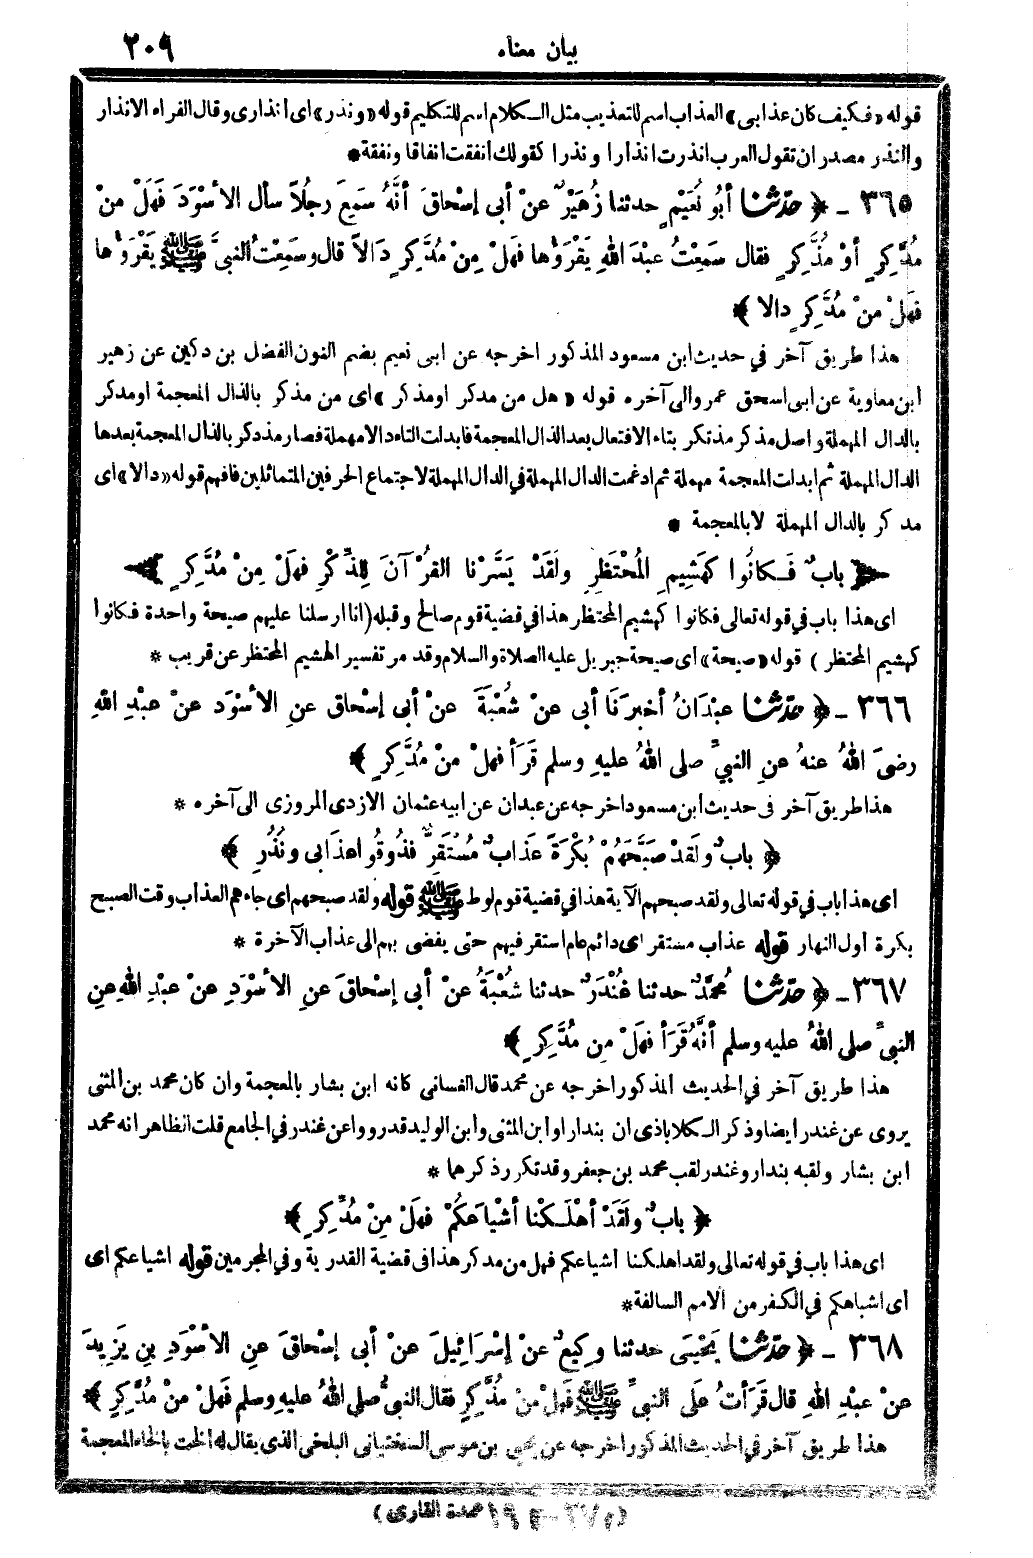 بيان معناه
٢٠٩
قوله «فكيف كان عذابى» العذاب اسم للتعذيب مثل الكلام اسم للتكليم قوله «ونذر» اى انذارى وقال الفراء الانذار
والنذر مصدران تقول العرب انذرت انذارا ونذرا كقولك انفقت انفاقا ونفقة *
٣٦٥ - ﴿ حدّثنا أبُو نُعَيْمٍ حدثنا زُهَيْرٌ عنْ أبى إسْحاقَ أنَّهُ سَمِعَ رجُلاً سأل الأسْوَدَ فَهَلْ مِنْ
مُدَّكِرٍ أوْ مُذَّكِرٍ فقال سَمِعْتُ عبْدَ اللهِ يَقْرَؤُها فهَلْ مِنْ مُدَّكِرٍ دَالاً قال وسَمِعْتُ النبىَّ ﷺ يَقْرَؤُها
فهَلْ منْ مُدَّكِرٍ دالا ﴾
هذا طريق آخر في حديث ابن مسعود المذكور اخرجه عن ابى نعيم بضم النون الفضل بن دكين عن زهير
ابن معاوية عن ابى اسحق عمرو الى آخره قوله «هل من مدكر او مذكر» اى من مذكر بالذال المعجمة او مدكر
بالدال المهملة واصل مذكر مذتكر بتاء الافتعال بعد الذال المعجمة فابدلت التاء دالا مهملة فصار مذدكر بالذال المعجمة بعدها
الدال المهملة ثم ابدلت المعجمة مهملة ثم ادغمت الدال المهملة في الدال المهملة لاجتماع الحرفين المتماثلين فافهم قوله «دالا» اى
مدكر بالدال المهملة لا بالمعجمة *
﴿ بابٌ فَكانُوا كَهَشِيمِ المُحْتَظِرِ ولَقَدْ يَسَّرْنا القُرْآنَ لِلذِّكْرِ فهَلْ مِنْ مُدَّكِرٍ ﴾
اى هذا باب في قوله تعالى فكانوا كهشيم المحتظر هذا في قضية قوم صالح وقبله (انا ارسلنا عليهم صيحة واحدة فكانوا
كهشيم المحتظر) قوله «صيحة» اى صيحة جبريل عليه الصلاة والسلام وقد مر تفسير الهشيم المحتظر عن قريب *
٣٦٦ - ﴿ حدّثنا عبْدَانُ أخبرَنَا أبى عنْ شُعْبَةَ عنْ أبى إسْحاق عنِ الأسْوَد عنْ عبْدِ اللهِ
رضىَ اللهُ عنهُ عنِ النبيِّ صلى اللهُ عليهِ وسلم قرَأ فهلْ منْ مُدَّكِرٍ ﴾
هذا طريق آخر فى حديث ابن مسعود اخرجه عن عبدان عن ابيه عثمان الازدى المروزى الى آخره *
﴿ بابٌ ولَقدْ صَبَّحَهُمْ بُكْرَةً عذَابٌ مُسْتَقِرٌّ فذُوقُوا عذَابى ونُذُرِ ﴾
اى هذا باب في قوله تعالى ولقد صبحهم الآية هذا في قضية قوم لوط ﷺ قوله ولقد صبحهم اى جاءهم العذاب وقت الصبح
بكرة اول النهار قوله عذاب مستقر اى دائم عام استقر فيهم حتى يفضى بهم الى عذاب الآخرة *
٣٦٧ - ﴿ حدّثنا مُحمَّدٌ حدثنا غُنْدَرٌ حدثنا شُعْبَةُ عنْ أبى إسْحاقَ عنِ الأسْوَدِ عنْ عبْدِ اللهِ عنِ
النبىِّ صلى اللهُ عليه وسلم أنَّهُ قَرَأ فهَلْ مِن مُدَّكِرٍ ﴾
هذا طريق آخر في الحديث المذكور اخرجه عن محمد قال الغسانى كانه ابن بشار بالمعجمة وان كان محمد بن المثنى
يروى عن غندر ايضا وذكر الكلاباذى ان بندارا وابن المثنى وابن الوليد قد رووا عن غندر في الجامع قلت الظاهر انه محمد
ابن بشار ولقبه بندار وغندر لقب محمد بن جعفر وقد تكرر ذكرهما *
﴿ بابٌ ولَقَدْ أهْلَكْنا أشْياعَكُمْ فهَلْ مِنْ مُدَّكِرٍ ﴾
اى هذا باب في قوله تعالى ولقد اهلكنا أشياعكم فهل من مدكر هذا فى قضية القدرية وفي المجرمين قوله اشياعكم اى
أى اشباهكم في الكفر من الامم السالفة *
٣٦٨ - ﴿ حدّثنا يَحْيَى حدثنا وكِيعٌ عنْ إسْرَائِيلَ عنْ أبى إسْحاقَ عنِ الأسْوَدِ بنِ يَزِيدَ
عنْ عبْدِ اللهِ قال قرَأتُ علَى النبيِّ ﷺ فهَلْ منْ مُذَّكِرٍ فقال النبىُّ صلى اللهُ عليهِ وسلم فهَلْ منْ مُدَّكِرٍ ﴾
هذا طريق آخر في الحديث المذكور اخرجه عن يحيى بن موسى السختيانى البلخى الذى يقال له الخت بالخاء المعجمة
عمدة القارى)